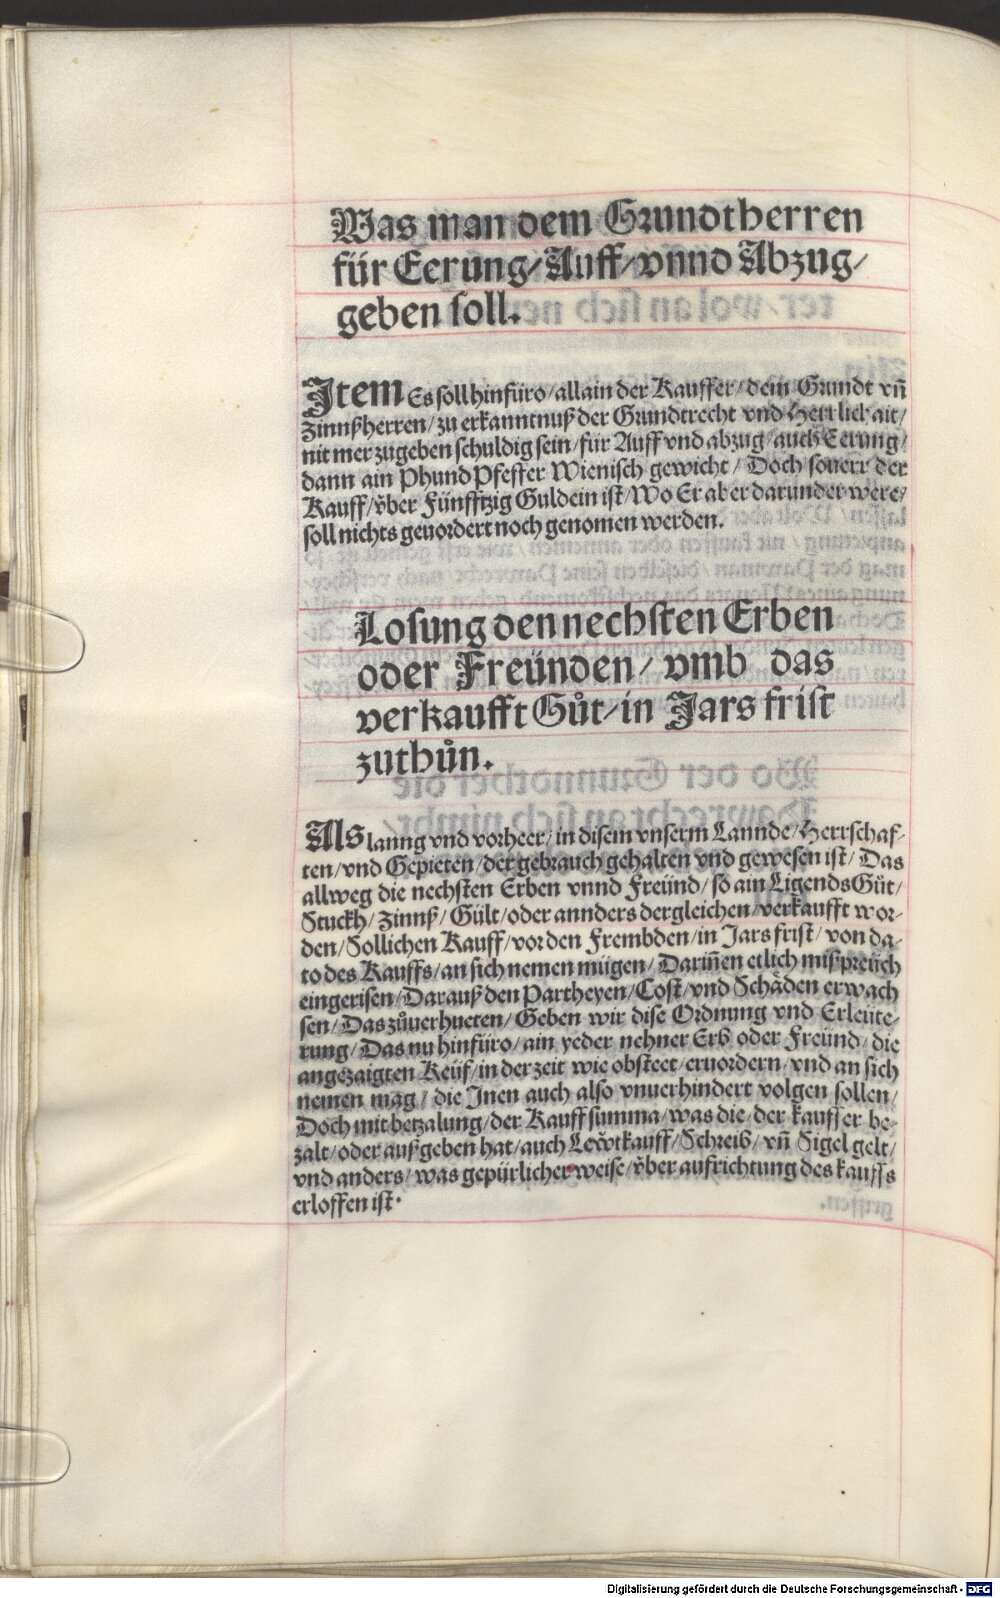 Was man dem Grundtherren
für Eerung/Auff/vnnd Abzug/
geben soll.
Item Es soll hinfüro/allain der Kauffer/dem Grundt vn̄
Zinnßherren/zu erkanntnuß der Grundtrecht vnd Herrlickait/
nit mer zugeben schuldig sein/für Auff vnd abzug/auch Eerung/
dann ain Phund Pfeffer Wienisch gewicht/Doch souerr der
Kauff/vͤber Fünfftzig Guldein ist/Wo Er aber darunder were/
soll nichts geuordert noch genomen werden.
Losung den nechsten Erben
oder Freünden/vmb das
verkaufft Gůt/in Jars frist
zuthůn.
Als lanng vnd vorheer/in disem vnserm Lannde/Herrschaf-
ten/vnd Gepieten/der gebrauch gehalten vnd gewesen ist/Das
allweg die nechsten Erben vnnd Freünd/so ain Ligends Gůt/
Stuckh/Zinnß/Gült/oder annders dergleichen/verkaufft wor-
den/Sollichen Kauff/vor den Frembden/in Jars frist/von da-
to des Kauffs/an sich nemen mügen/Darin̄en etlich mißpreüch
eingerisen/Darauß den Partheyen/Cost/vnd Schäden erwach
sen/Das zůuerhueten/Geben wir dise Ordnung vnd Erleüte-
rung/Das nu hinfüro/ain yeder nehner Erb oder Freünd/die
angezaigten Keüf/in der zeit wie obsteet/eruordern/vnd an sich
nemen mag/die Jnen auch also vnuerhindert volgen sollen/
Doch mit betzalung/der Kauffsumma/was die/der kauffer be-
zalt/oder außgeben hat/auch Leẃtkauff/Schreib/vn̄ Sigel gelt/
vnd anders/was gepürlicher weise/vͤber aufrichtung des kauffs
erloffen ist.
Digitalisierung gefördert durch die Deutsche Forschungsgemeinschaft - DFG